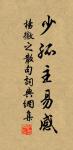 少孤主易感
楊徽之散句詞典網集